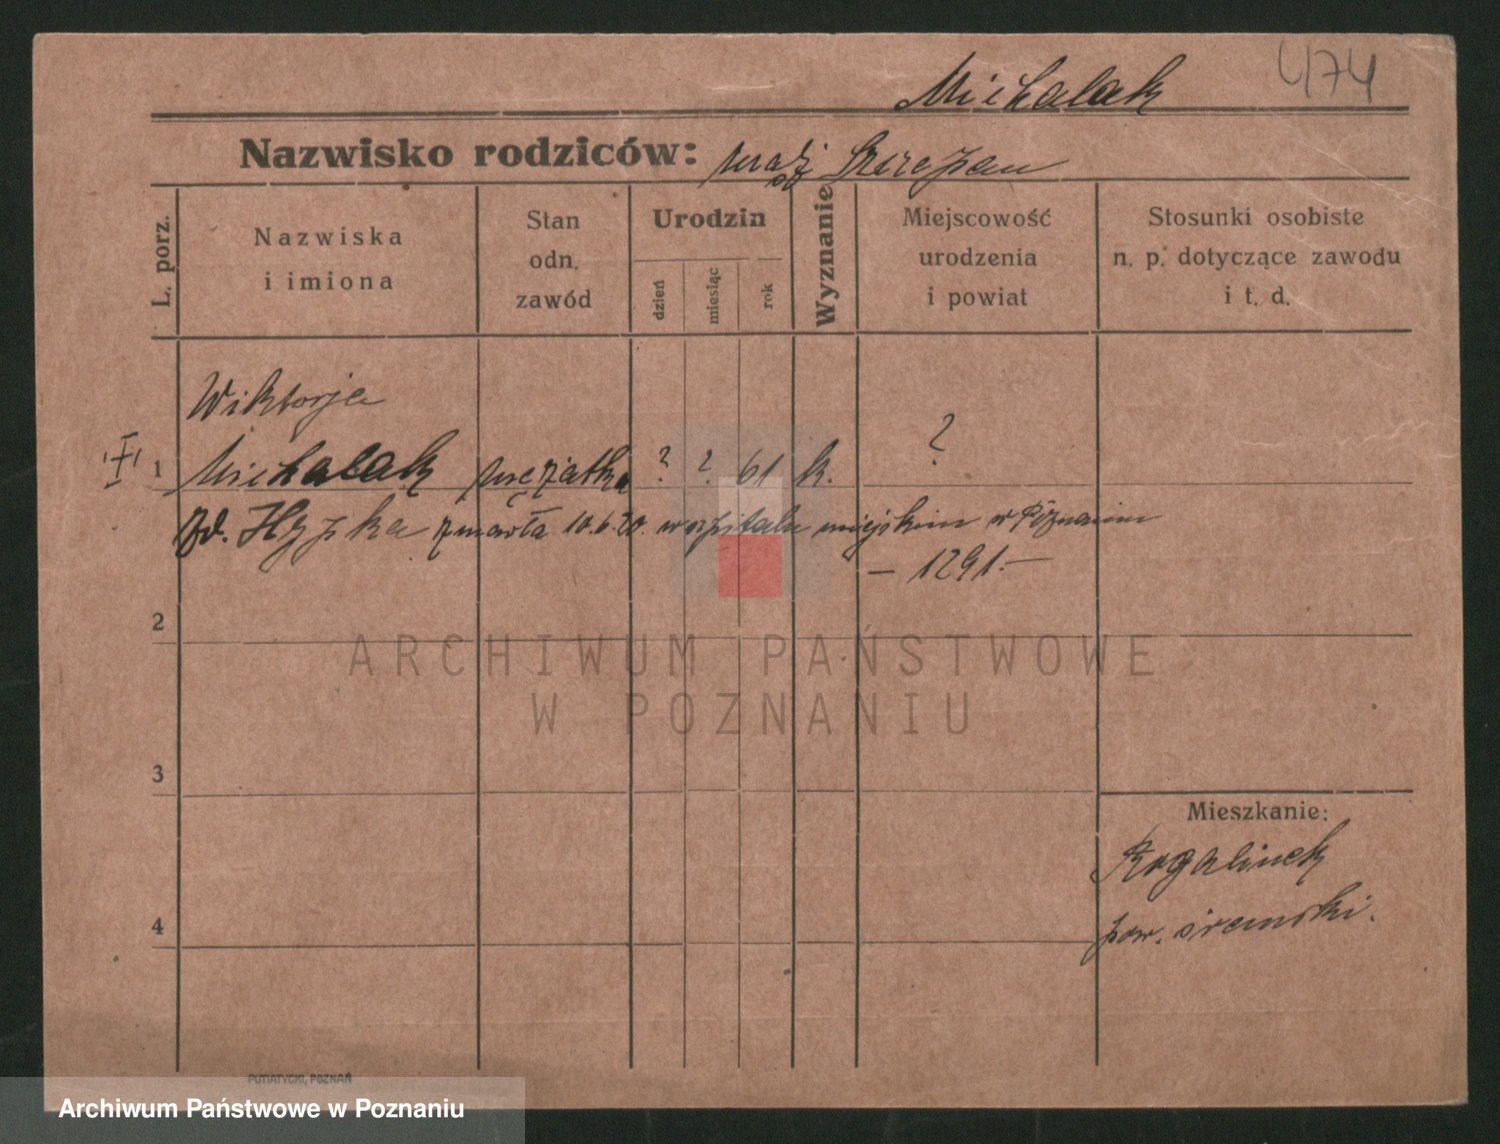 Michalak 474
Nazwisko rodziców: mąż Szczepan
L. porz.
Nazwiska
i imiona
Stan
odn.
zawód
Urodzin
dzień
miesiąc
rok
Wyznanie
Miejscowość
urodzenia
i powiat
Stosunki osobiste
n. p. dotyczące zawodu
i t. d.
Wiktorja
1 Michalak mężatka ? ? 61 k. ?
zd. Hyżka zmarła 10.6.20. w szpitalu miejskim w Poznaniu
– 1291.–
2
ARCHIWUM PAŃSTWOWE
W POZNANIU
3
Mieszkanie:
Rogalinek
4
pow. śremski.
PUTIATYCKI, POZNAŃ
Archiwum Państwowe w Poznaniu